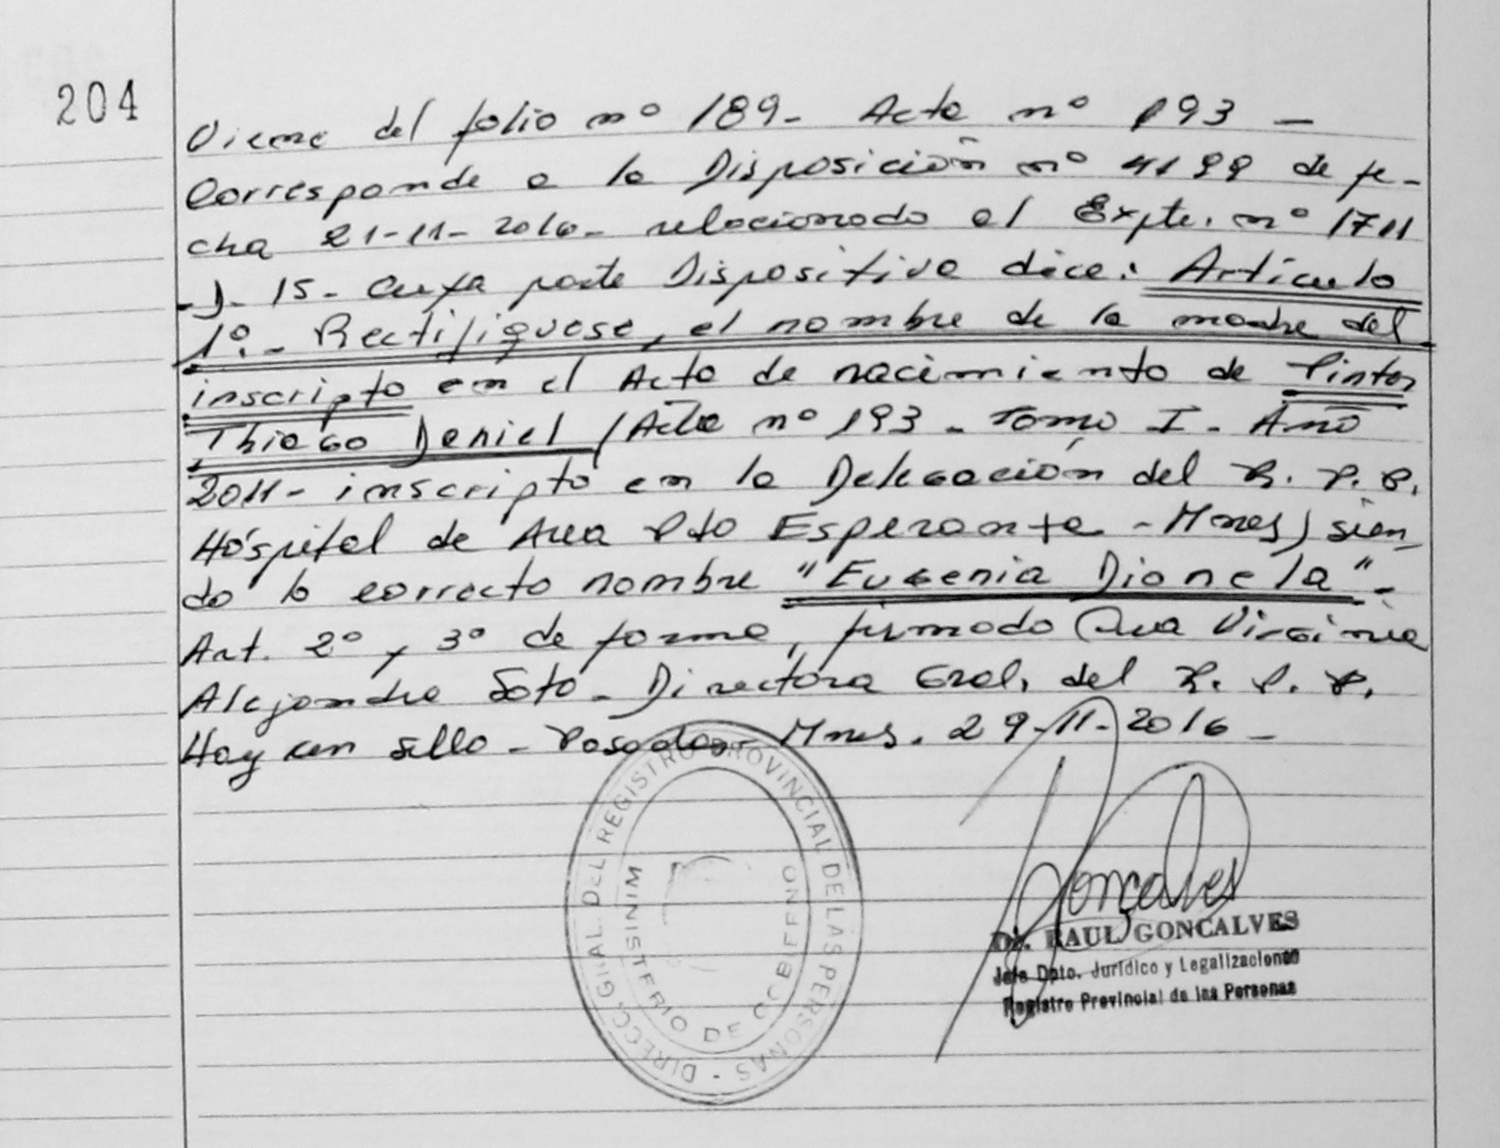 204
Viene del folio nº 189- Acta nº 193 -
Corresponde a la Disposición nº 4199 de fe-
cha 21-11-2016- relacionado al Expte. nº 1711
-J- 15- cuya parte Dispositiva dice: Artículo
1º.- Rectifíquese, el nombre de la madre del
inscripto en el Acta de nacimiento de Pintos
Thiago Daniel (Acta nº 193 - Tomo I - Año
2011- inscripto en la Delegación del R. P. P.
Hospital de Area Pto Esperanza - Mnes) sien-
do lo correcto nombre "Eugenia Dionela"-
Art. 2º y 3º de forma, firmado Dra Virginia
Alejandra Soto - Directora Gral. del R. P. P.
Hay un sello - Posadas - Mnes. 29-11-2016 -
DIRECC. GRAL. DEL REGISTRO PROVINCIAL DE LAS PERSONAS -
MINISTERIO DE GOBIERNO
Goncalves
Dr. RAUL GONCALVES
Jefe Dpto. Jurídico y Legalizaciones
Registro Provincial de las Personas